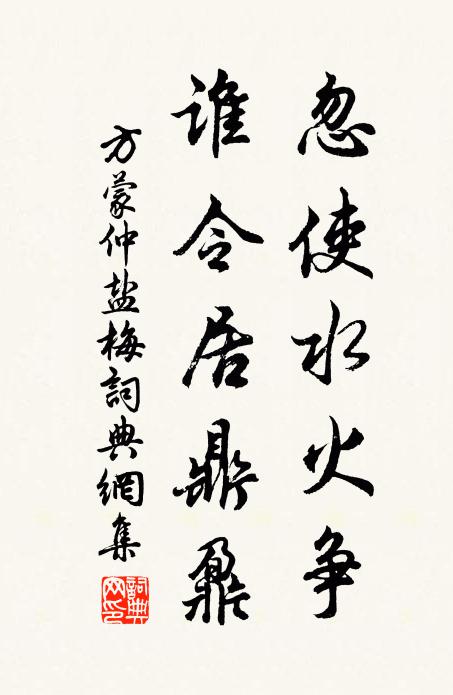 忽使水火争
谁令居鼎鼐
方蒙仲盐梅詞典網集
詞典网印